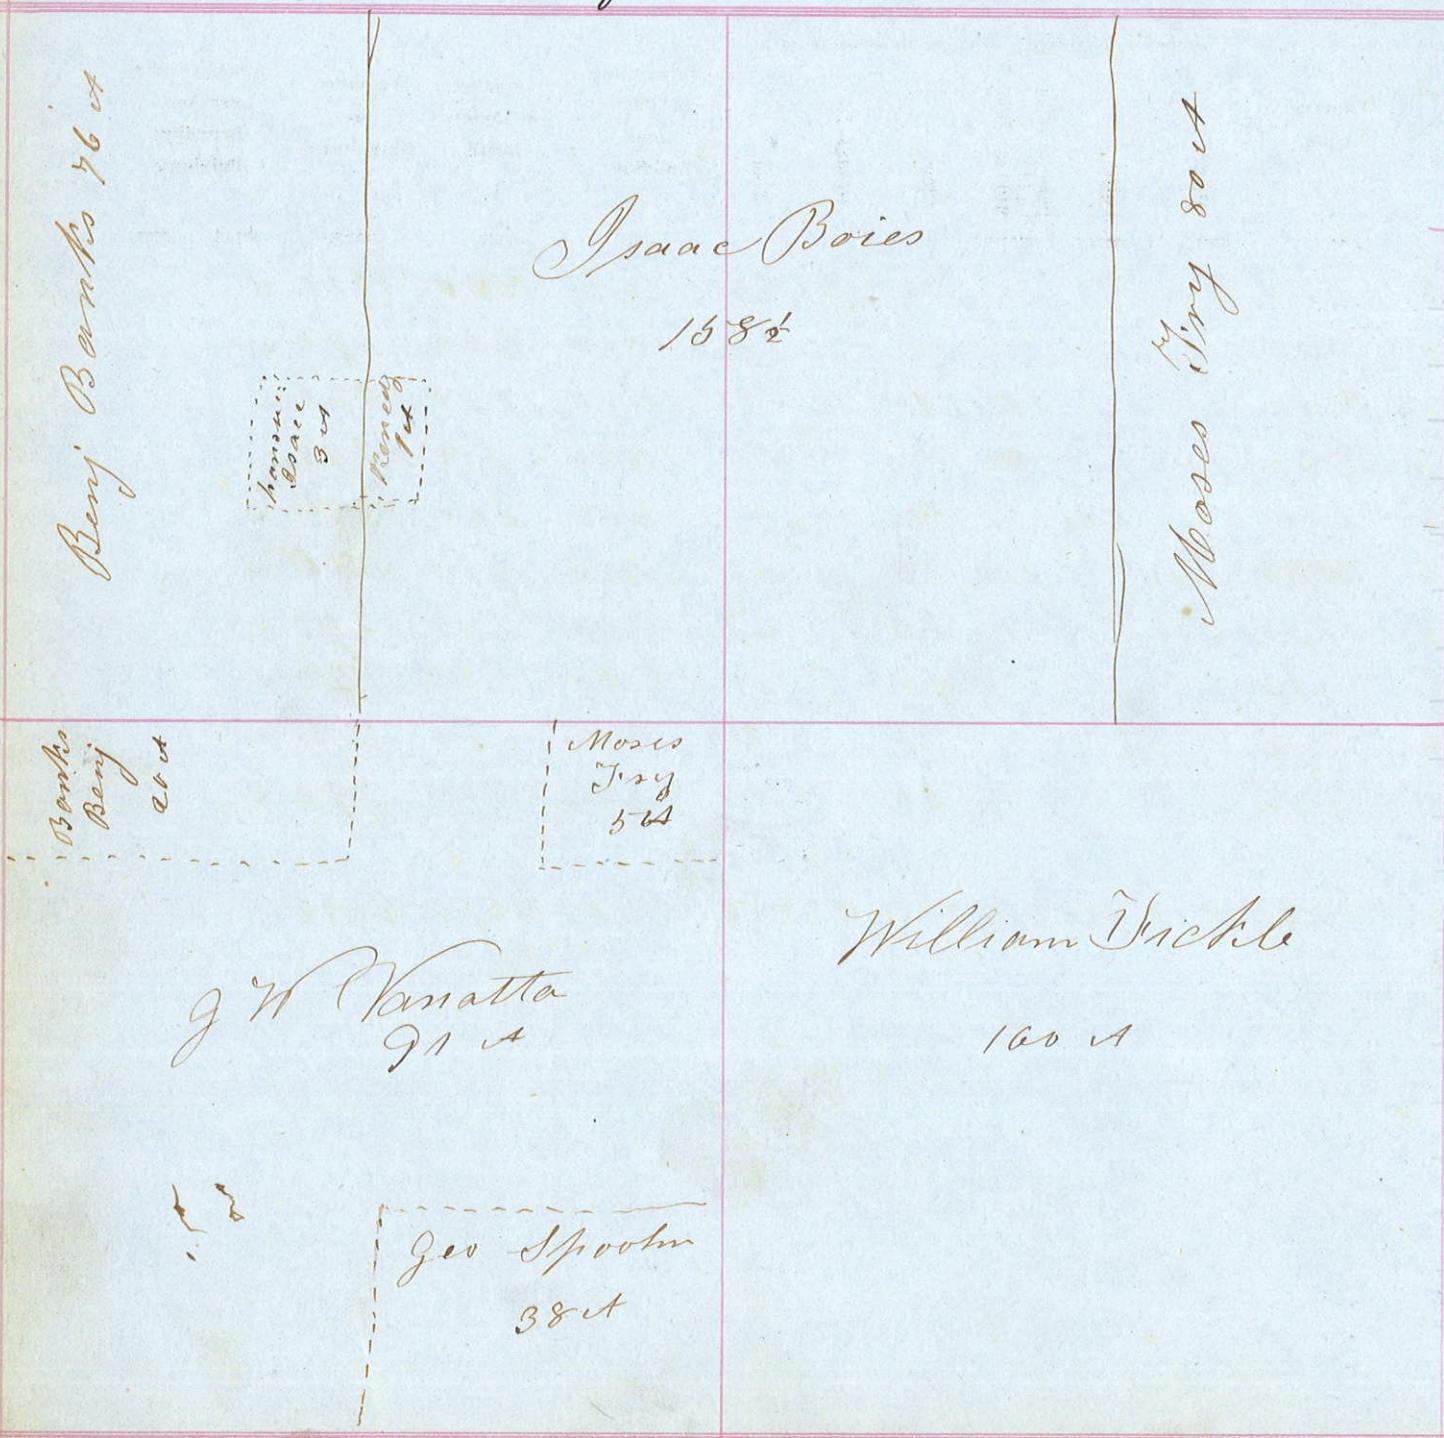 Benj Banks 76 A
Isaac Boies
158½
Moses Fry 80 A
Isaac
3 A
Kenedy
1 A
Banks
Benj
20 A
Moses
Fry
5 A
G W Vanatta
91 A
William Fickle
160 A
Geo Spoohn
38 A